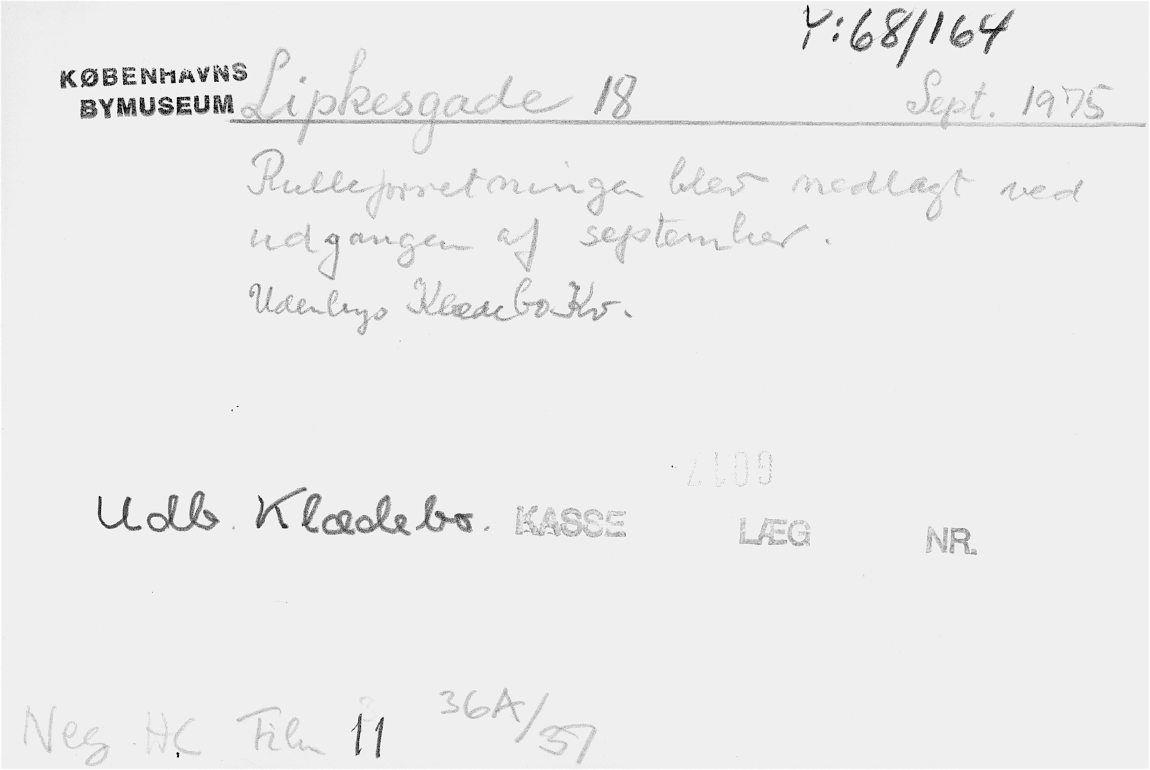 Y:68/164
KØBENHAVNS
BYMUSEUM
Lipkesgade 18 Sept. 1975
Rulleforretningen blev nedlagt ved
udgangen af september.
Udenbys Klædebo Kv.
Udb. Klædebo. KASSE LÆG NR.
Neg HC Film 11 36A/37